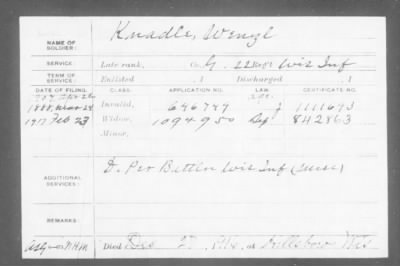 NAME OF SOLDIER: Knadle, Wenzl
SERVICE: Late rank, Co. G, 22 Reg't Wis Inf
TERM OF SERVICE: Enlisted , 1 Discharged , 1
DATE OF FILING. CLASS. APPLICATION NO. LAW. CERTIFICATE NO.
1888, Invalid, 646749 1111693
1917 Feb 23 Widow, 1094950 842863
Minor,
ADDITIONAL SERVICES: Wis Inf
REMARKS:
Died Dec at Hillsboro Wis